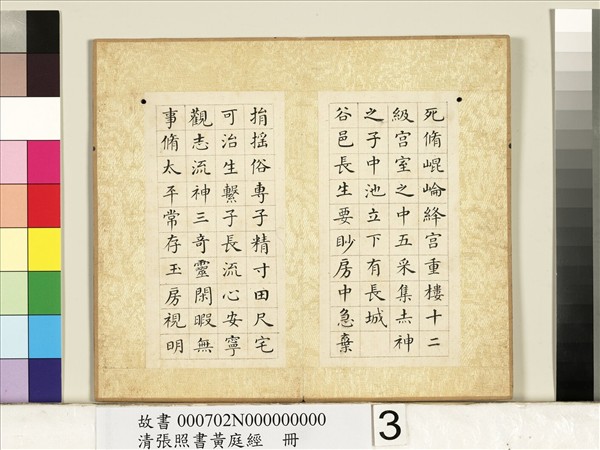 死脩崐崘絳宫重樓十二
級宫室之中五采集赤神
之子中池立下有長城
谷邑長生要眇房中急棄
捐揺俗専子精寸田尺宅
可治生繫子長流心安寧
觀志流神三竒靈閑暇無
事脩太平常存玉房視明
故書 000702N000000000
清張照書黃庭經 冊
3